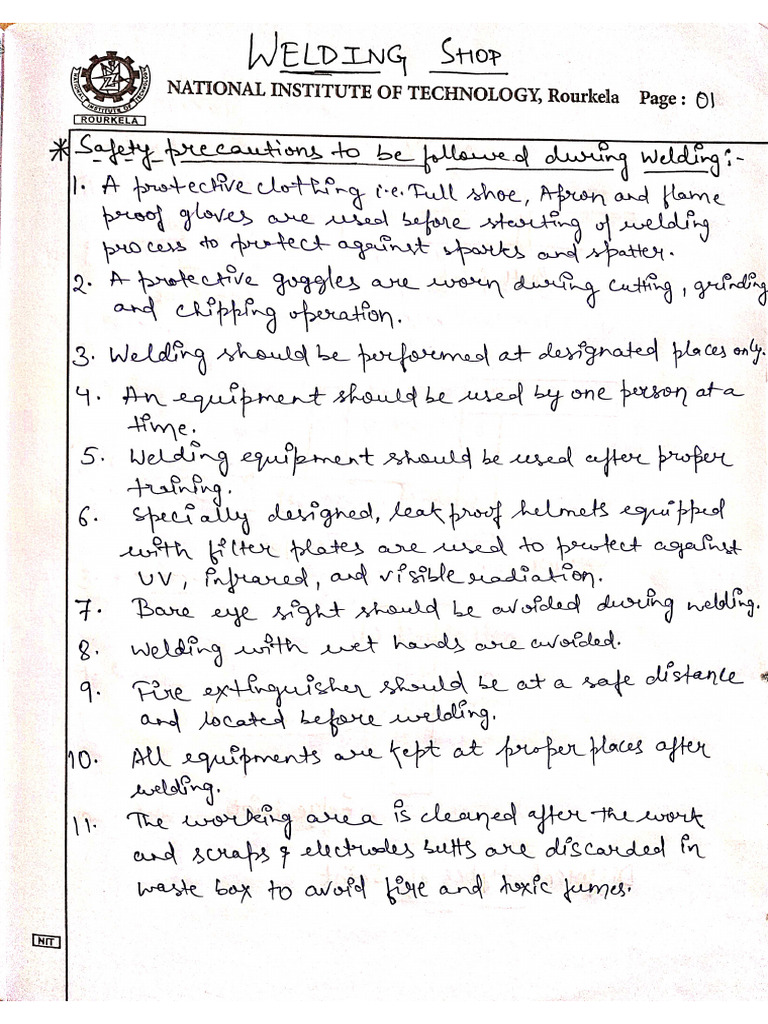 WELDING SHOP
NATIONAL INSTITUTE OF TECHNOLOGY, Rourkela Page: 01
NATIONAL INSTITUTE OF TECHNOLOGY
ROURKELA
* Safety precautions to be followed during welding:-
1. A protective clothing i.e. Full shoe, Apron and flame
proof gloves are used before starting of welding
process to protect against sparks and spatter.
2. A protective goggles are worn during cutting, grinding
and chipping operation.
3. Welding should be performed at designated places only.
4. An equipment should be used by one person at a
time.
5. Welding equipment should be used after proper
training.
6. Specially designed, leak proof helmets equipped
with filter plates are used to protect against
UV, infrared, and visible radiation.
7. Bare eye sight should be avoided during welding.
8. Welding with wet hands are avoided.
9. Fire extinguisher should be at a safe distance
and located before welding.
10. All equipments are kept at proper places after
welding.
11. The working area is cleaned after the work
and scraps & electrodes butts are discarded in
waste box to avoid fire and toxic fumes.
NIT